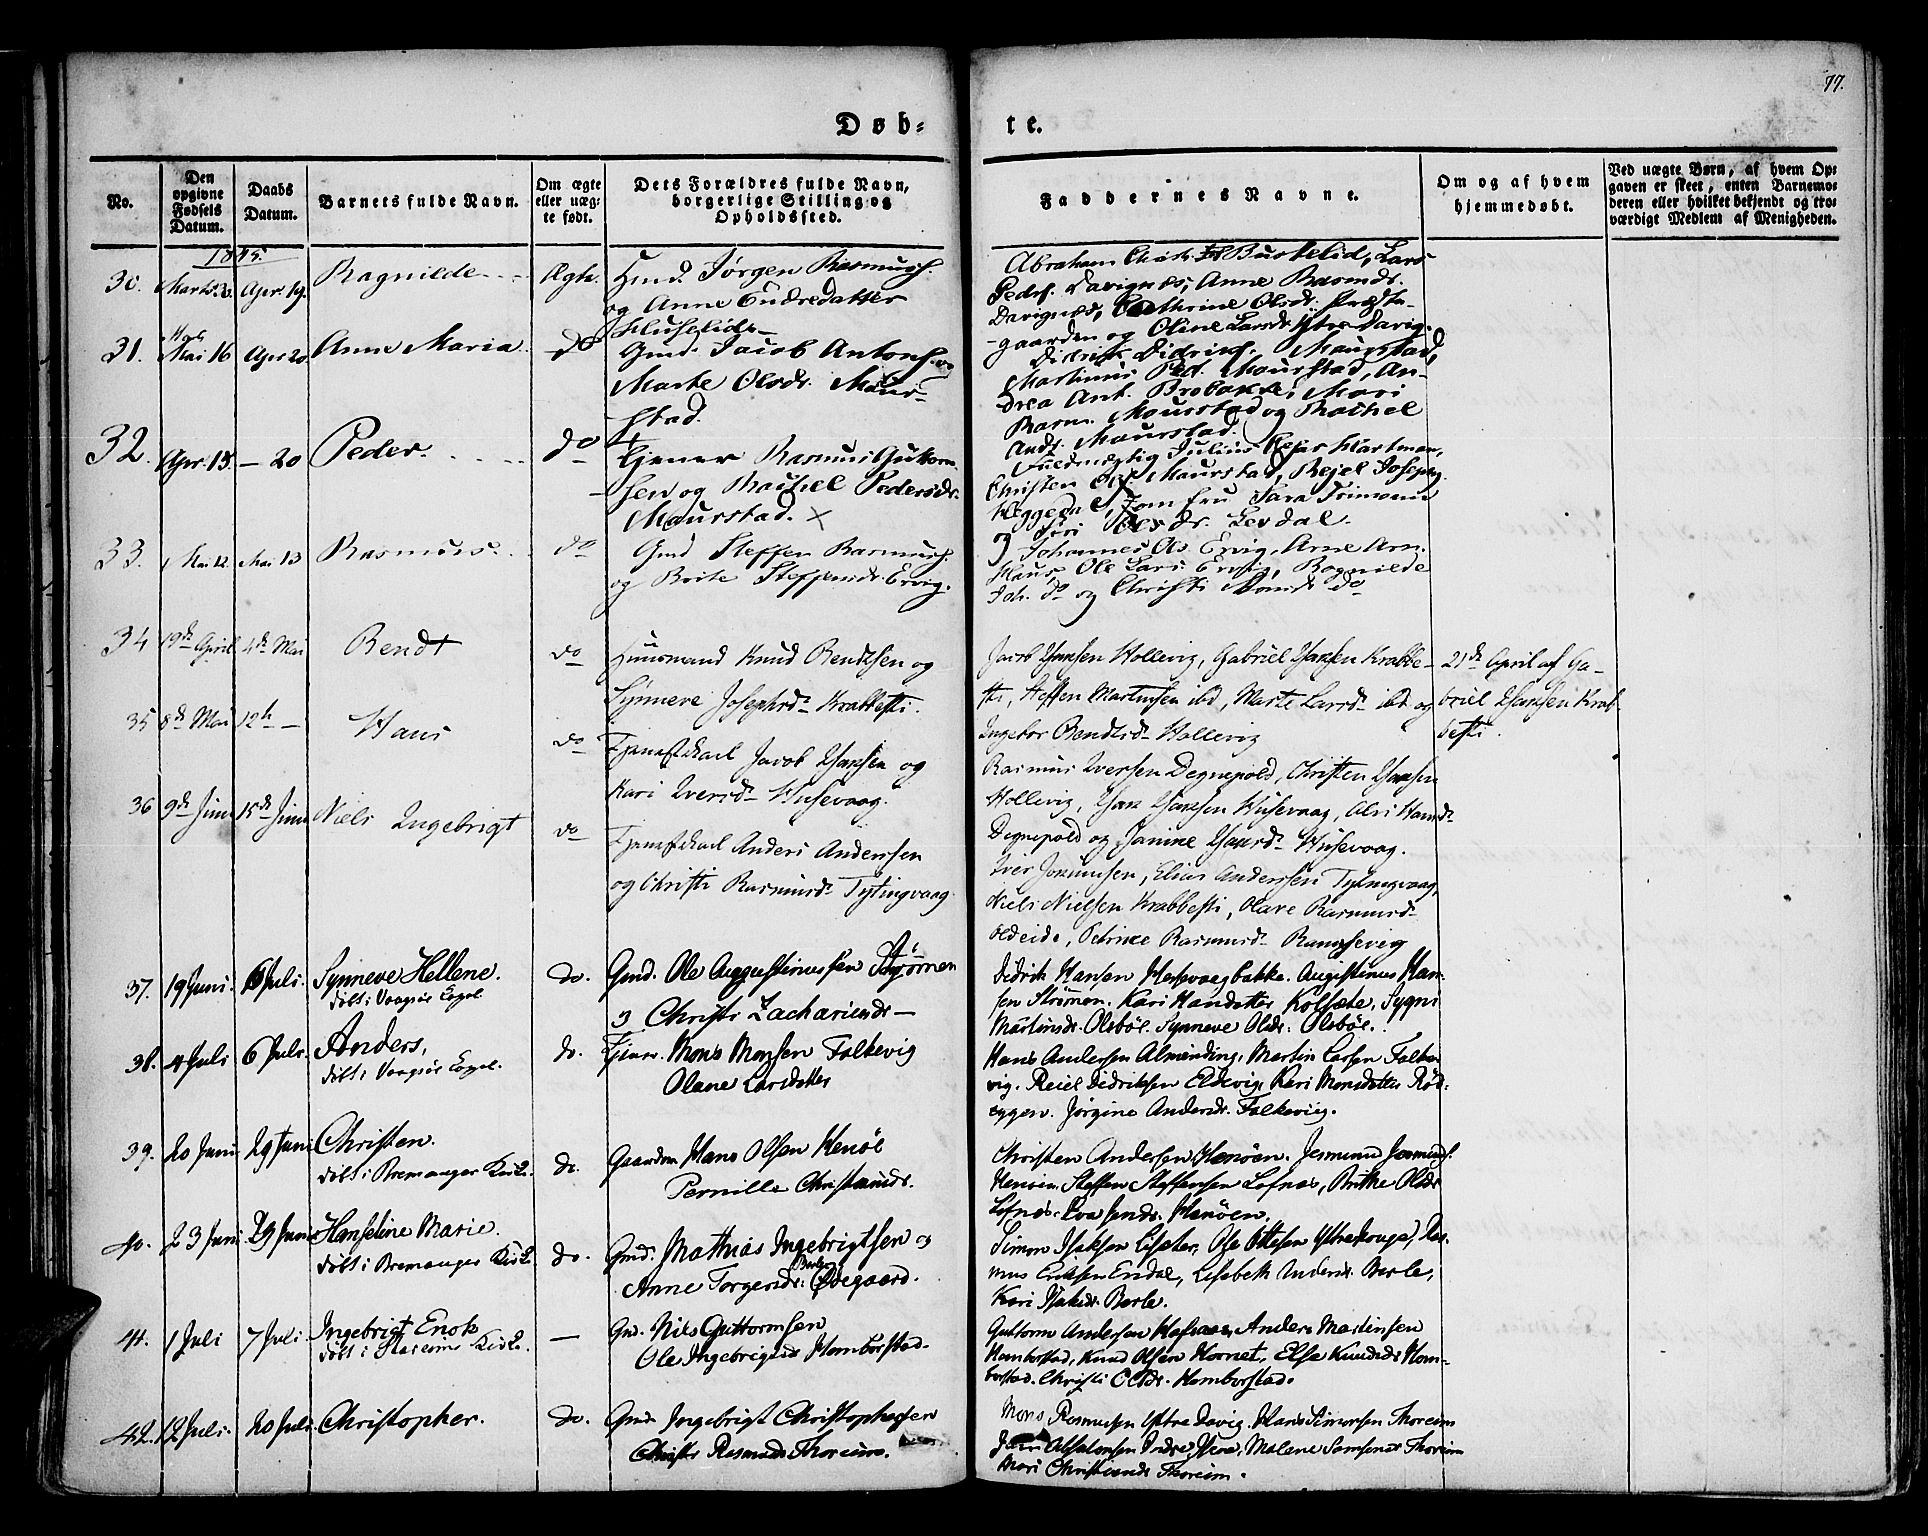 77.
Døb-
te.
No.
Den opgivne Fødsels Datum.
Daabs Datum.
Barnets fulde Navn.
Om ægte eller uægte født.
Dets Forældres fulde Navn, borgerlige Stilling og Opholdssted.
Faddernes Navne.
Om og af hvem hjemmedøbt.
Ved uægte Børn, af hvem Opgaven er skeet, enten Barnemoderen eller hvilket bekjendt og troværdigt Medlem af Menigheden.
1845
30. Apr. 19. Ragnilde Ægte Jørgen Rasmuss.
og Anne Endredatter
Huselide
Davignes, Anne Rasmd.
Davignes, Cathrine Olsdr.
gaarden og Oline Larsdr. Ytre Davig.
31. Mai 16 Apr 20 Anne Maria do Gmd. Jacob Antons. og
Marte Olsdr. Maur-
stad.
Didrik Didriks. Maurstad,
Martinus Ped. Maurstad, An-
drea Ant. Brobakke, Mari
Rasm. Maurstad og Rachel
Andr. Maurstad.
32. Apr. 13. – 20 Peder. do Tjener Rasmus Guttorm-
sen og Rachel Pedersdr.
Maurstad. X
Fuldmægtig Julius Hartman,
Christen Ols. Maurstad,
Jomfru Sara
og Olsdr. Levdal.
33. Mai 12 Mai 13 Rasmus do Gmd Steffen Rasmuss.
og Brite Steffensdr. Ervig.
Johannes Ols. Ervig, Arne Arn.
Ole Lars. Ervig, Ragnilde
Joh. do og Christi do
34 19de April 4de Mai Bendt do Huusmand Knud Bendtsen og
Synneve Josephsd. Krabbesti.
Jacob Hansen Hollevig, Gabriel Hansen Krabbe-
sti, Steffen Martinsen ibd, Marte Larsd. ibd. og
Ingebor Bendtsd. Hollevig
21de April af Ga-
briel Hansen Krab-
besti.
35 8de Mai 12te — Hans do Tjenestekarl Jacob Hansen og
Kari Iversd. Husevaag.
Rasmus Iversen Degnepold, Christen Hansen
Hollevig, Hans Hansen Husevaag,
Degnepold og Janine Hansd. Husevaag.
36 9de Juni 15de Juni Niels Ingebrigt do Tjenestekarl Anders Andersen
og Christi Rasmusd. Tytingvaag.
Iver Jonunsen, Elias Andersen Tytingvaag,
Niels Nielsen Krabbesti, Olave Rasmusd.
Oldeide, Petrine Rasmusd.
37. 19 Juni. 6 Juli. Synneve Hellene. do. Gmd. Ole Augustinussen Strømen
døbt i Vaagsøe Capel
og Christi Zachariasdr —
Didrik Hansen Husevaagbakke. Augustinus Han-
sen Strømen. Kari Hansdatter Kolsæte, Sygni
Martinsdr. Olsbøl. Synneve Olsdr. Olsbøl.
38. 4 Juli 6 Juli. Anders, do. Tjener. Mons Monsen Falkevig
døbt i Vaagsøe Capel.
Olane Larsdatter
Hans Andersen Almending, Martin Larsen Falke-
vig. Reiel Didriksen Eldevig, Kari Monsdatter Rød-
eggen. Jørgine Andersdr. Falkevig.
39. 20 Juni 29 Juni Christen. do. Gaardm. Hans Olsen Henøe
døbt i Bremanger Kirke.
Pernille Christensdr.
Christen Andersen Henøen. Jesmund Jesmunds.
Henøen Steffen Steffensen Lofnes, Brithe Olsdr
Lofnes. Henøen.
40. 23 Juni 29 Juni Hanseline Marie. do. Gmd. Mathias Ingebrigtsen og
døbt i Bremanger Kirke
Anne Torgersdr. Berle Ødegaard.
Simon Isaksen Ole Ottesen Ras-
mus Eriksen Endal, Lisabeth Andersdr. Berle,
Kari Isaksdr. Berle.
41. 1 Juli 7 Juli. Ingebrigt Enok — Gmd. Nils Guttormsen
døbt i Kirke.
Ole Ingebrigtsdr Homborstad.
Guttorm Andersen Anders Martinsen
Homborstad, Knud Olsen Hornet, Else Knudsdr Hom-
borstad. Christi Olsdr. Homborstad.
42. 12 Juli. 20 Juli. Christopher. do. Gmd. Ingebrigt Christophersen
Christi Rasmusdr Thoreim.
Mons Rasmussen Ytre Davig. Hans Simonsen Thoreim
Absalonsen Malene Samsonsdr Thoreim
Mari Christiansdr Thoreim.